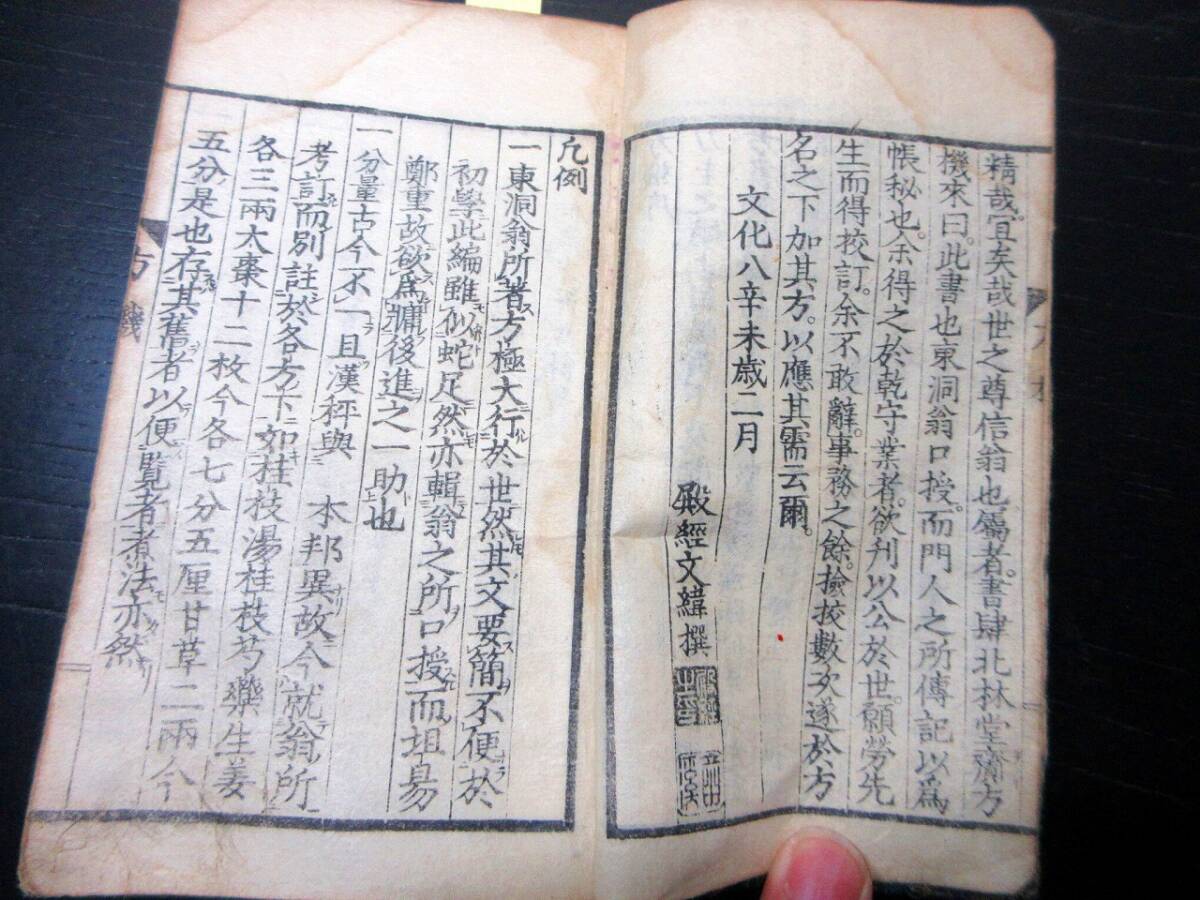 精哉宜矣哉世之尊信翁也屬者書肆北林堂齋方
機來曰此書也東洞翁口授而門人之所傳記以爲
帳秘也余得之於乾守業者欲刋以公於世願勞先
生而得校訂余不敢辭事務之餘撿挍數次遂於方
名之下加其方以應其需云爾
文化八辛未歳二月
殿經文緯撰
凡例
一東洞翁所著方極大行於世然其文要簡不便於
初學此編雖似蛇足然亦輯翁之所口授而坦易
鄭重故欲爲牖後進之一助也
一分量古今不一且漢秤與 本邦異故今就翁所
考訂而別註於各方下如桂枝湯桂枝芍藥生姜
各三兩大棗十二枚今各七分五厘甘草二兩今
五分是也存其舊者以便覽者煮法亦然
方 機